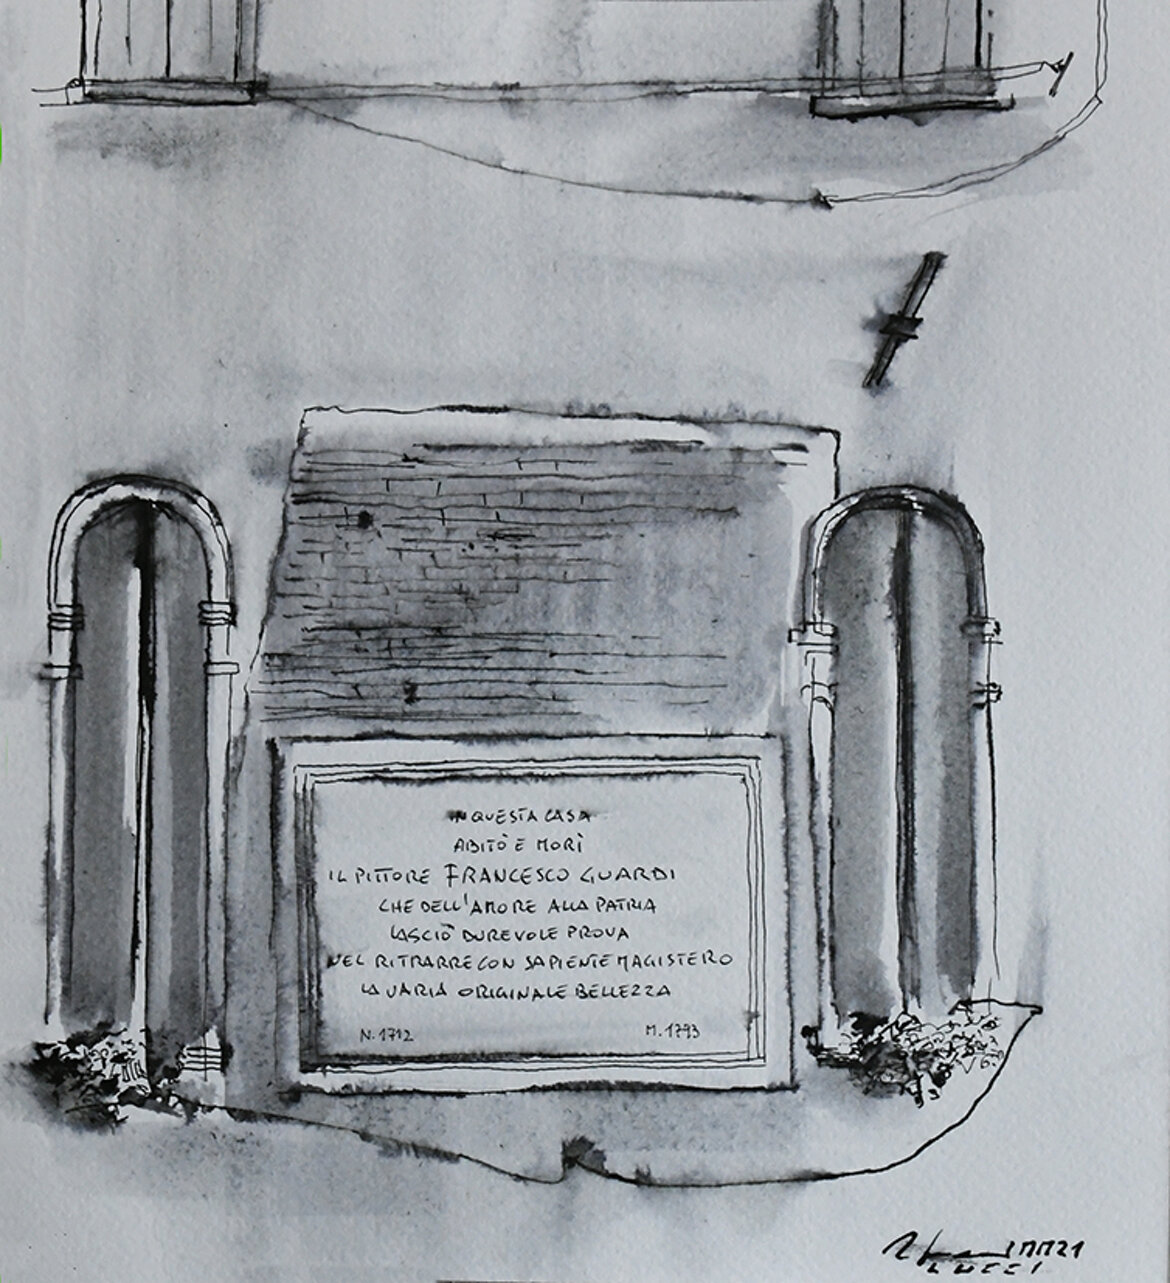 IN QUESTA CASA
ABITÒ E MORÌ
IL PITTORE FRANCESCO GUARDI
CHE DELL'AMORE ALLA PATRIA
LASCIÒ DUREVOLE PROVA
NEL RITRARRE CON SAPIENTE MAGISTERO
LA VARIA ORIGINALE BELLEZZA
N. 1712 M. 1793